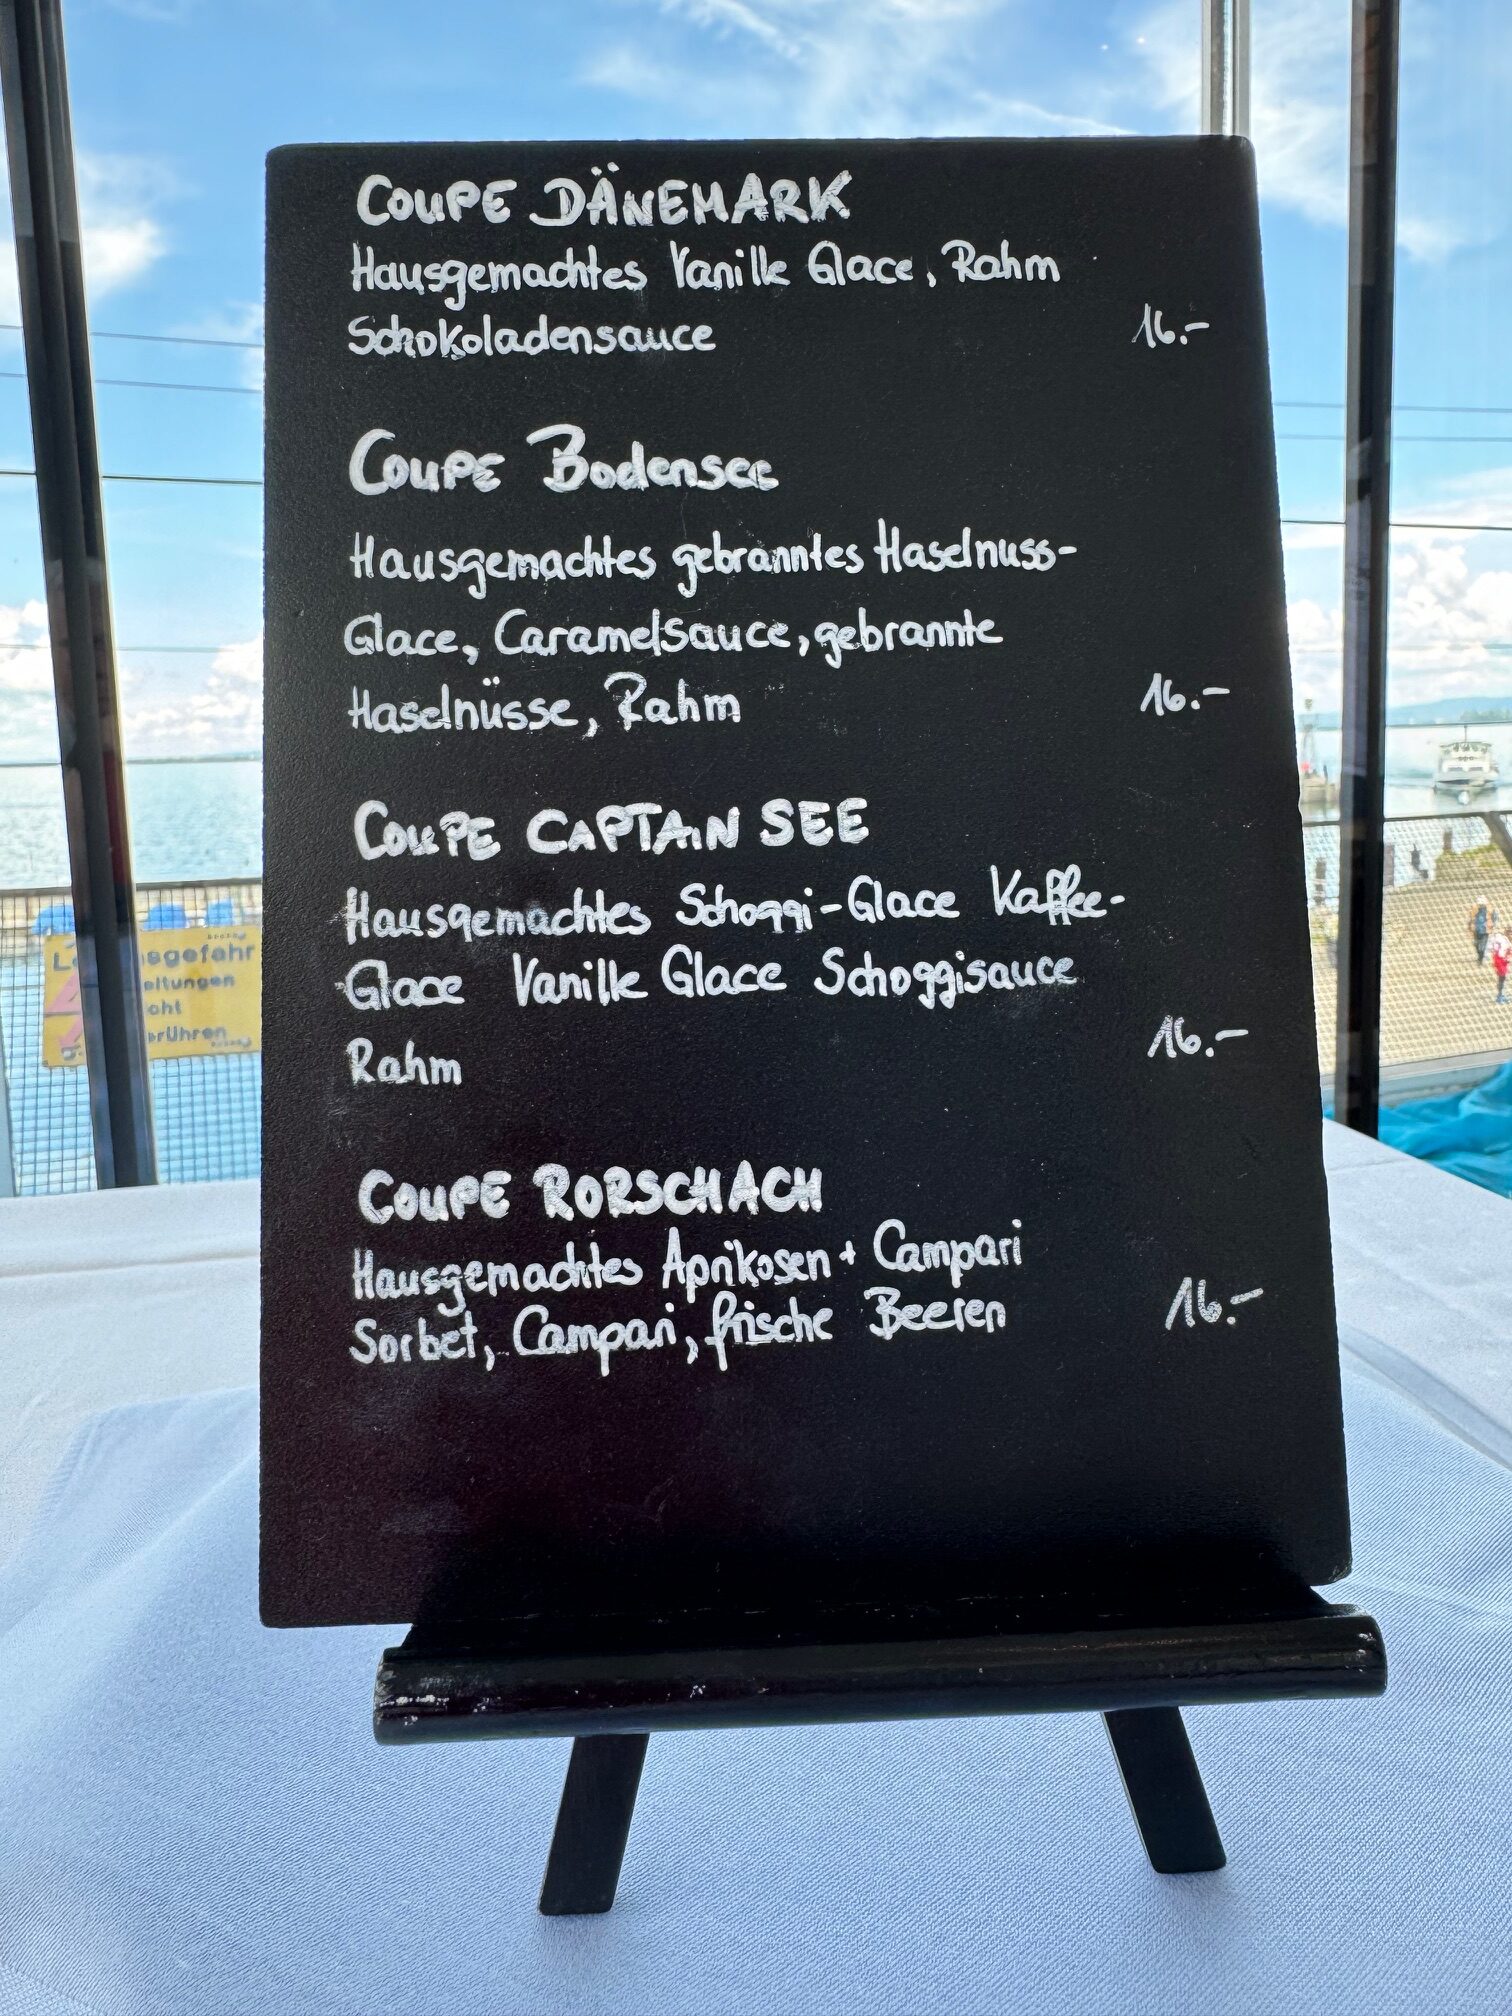 COUPE DÄNEMARK
Hausgemachtes Vanille Glace, Rahm
Schokoladensauce 16.-
Coupe Bodensee
Hausgemachtes gebranntes Haselnuss-
Glace, Caramelsauce, gebrannte
Haselnüsse, Rahm 16.-
COUPE CAPTAIN SEE
Hausgemachtes Schoggi-Glace Kaffee-
Glace Vanille Glace Schoggisauce
Rahm 16.-
COUPE RORSCHACH
Hausgemachtes Aprikosen + Campari
Sorbet, Campari, frische Beeren 16.-